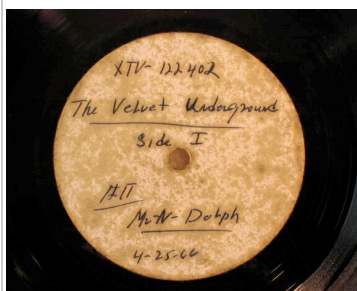 XTV-122402
The Velvet Underground
Side I
Mr N. Dolph
4-25-66